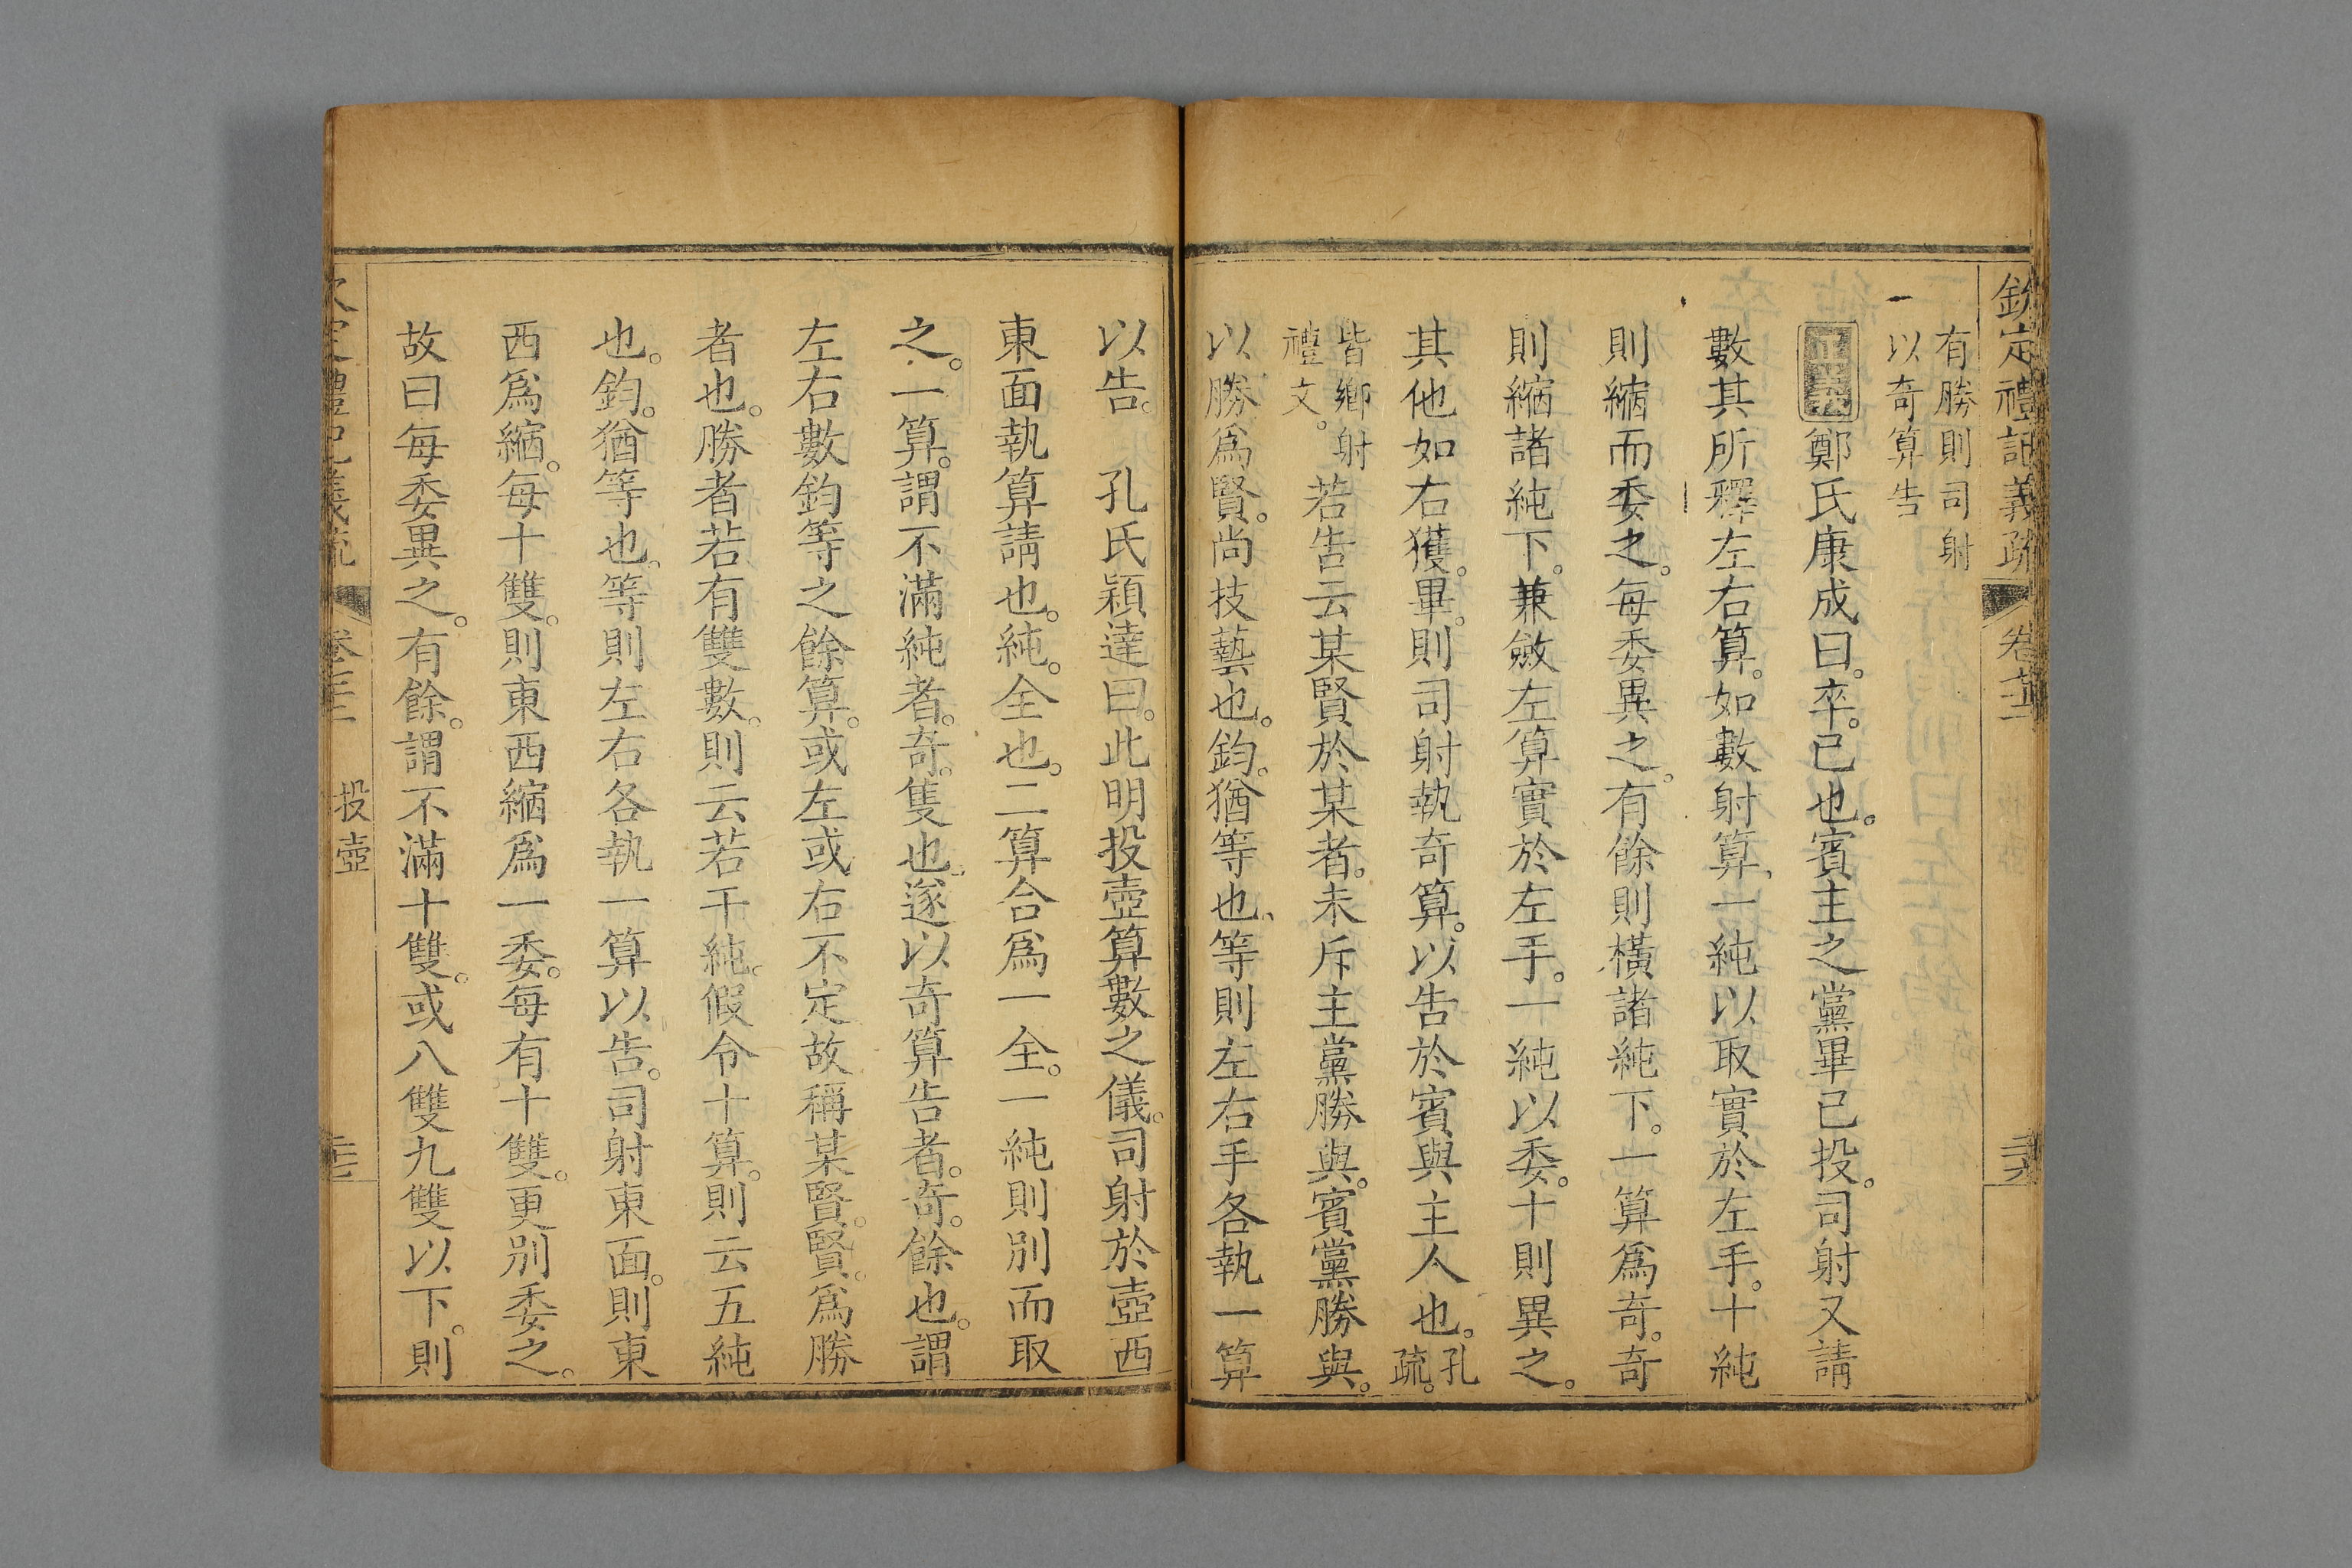 欽定禮記義疏 卷 投壺
有勝則司射
以奇算告
正義鄭氏康成曰。卒。已也。賓主之黨畢已投。司射又請
數其所釋左右算。如數射算、一純以取實於左手。十純
則縮而委之。每委異之。有餘則橫諸純下。一算爲奇。奇
則縮諸純下。兼斂左算實於左手。一純以委。十則異之。
其他如右獲。畢。則司射執奇算。以告於賓與主人也。孔疏。
皆鄉射禮文。若告云某賢於某者。未斥主黨勝與。賓黨勝與。
以勝爲賢。尚技藝也。鈞。猶等也、等則左右手各執一算
以告。 孔氏穎達曰。此明投壺算數之儀。司射於壺西
東面執算請也。純。全也。二算合爲一全。一純則別而取
之。一算。謂不滿純者。奇。隻也。遂以奇算告者。奇。餘也。謂
左右數鈞等之餘算。或左或右不定故稱某賢。賢。爲勝
者也。勝者若有雙數。則云若干純。假令十算。則云五純
也。鈞。猶等也。等則左右各執一算以告。司射東面。則東
西爲縮。每十雙。則東西縮爲一委。每有十雙。更別委之。
故曰每委異之。有餘。謂不滿十雙。或八雙九雙以下。則
禮記義疏 投壺